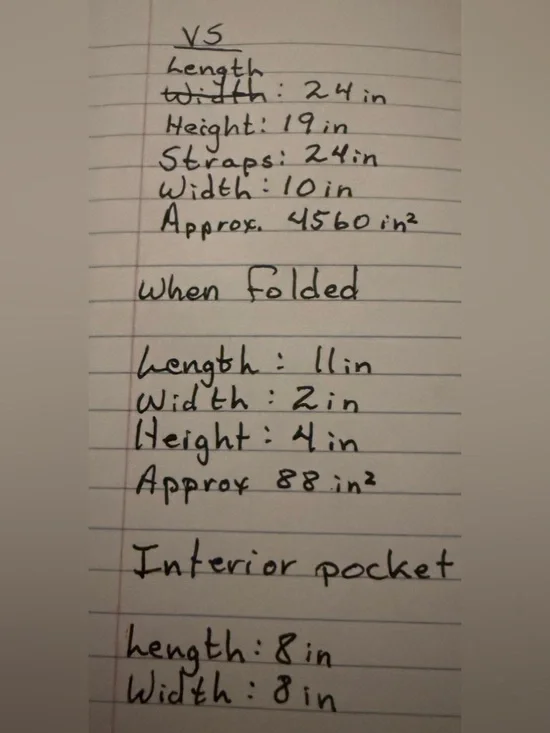 VS
Length
Width: 24 in
Height: 19 in
Straps: 24 in
Width: 10 in
Approx. 4560 in²
When Folded
Length: 11 in
Width: 2 in
Height: 4 in
Approx 88 in²
Interior pocket
Length: 8 in
Width: 8 in